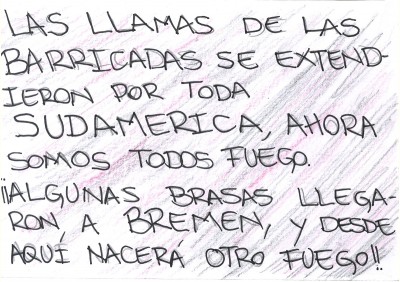 LAS LLAMAS DE LAS
BARRICADAS SE EXTEND-
IERON POR TODA
SUDAMERICA, AHORA
SOMOS TODOS FUEGO.
¡¡ALGUNAS BRASAS LLEGA-
RON, A BREMEN, Y DESDE
AQUÍ NACERA OTRO FUEGO!!